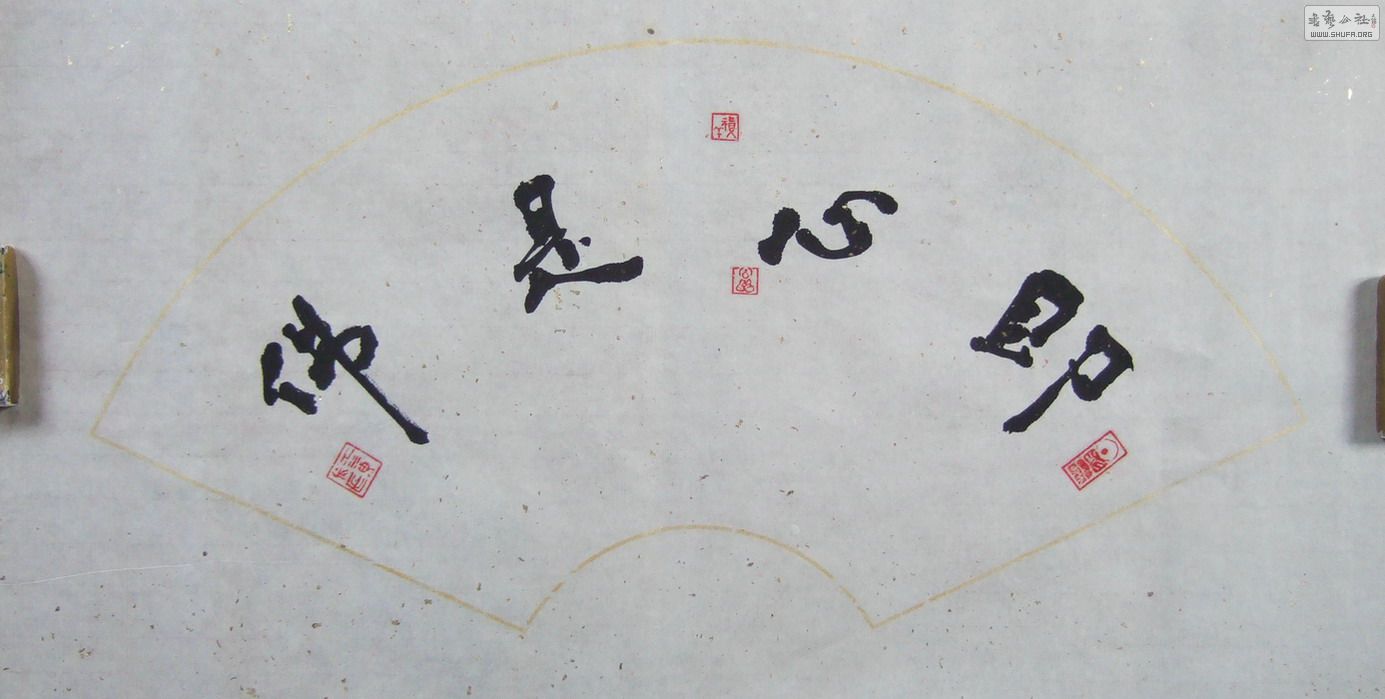 即心是佛
書藝公社
WWW.SHUFA.ORG